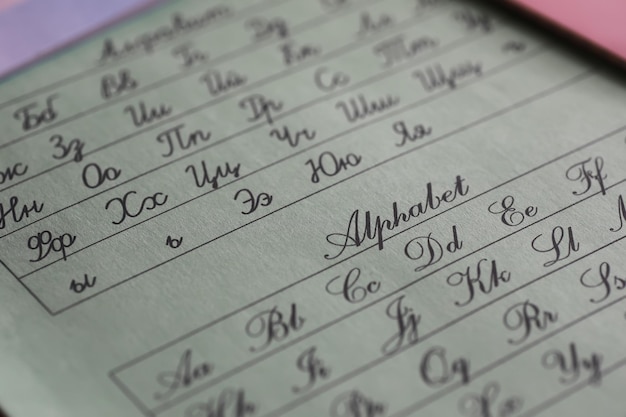 Алфавит
Бб Вв Гг
Зз Ии Йй Кк Лл
Нн Оо Пп Рр Сс Тт
Фф Хх Цц Чч Шш Щщ ъ
ы ь Ээ Юю Яя
Alphabet
Aa Bb Cc Dd Ee Ff
Ii Jj Kk Ll
Qq Rr Ss
Yy